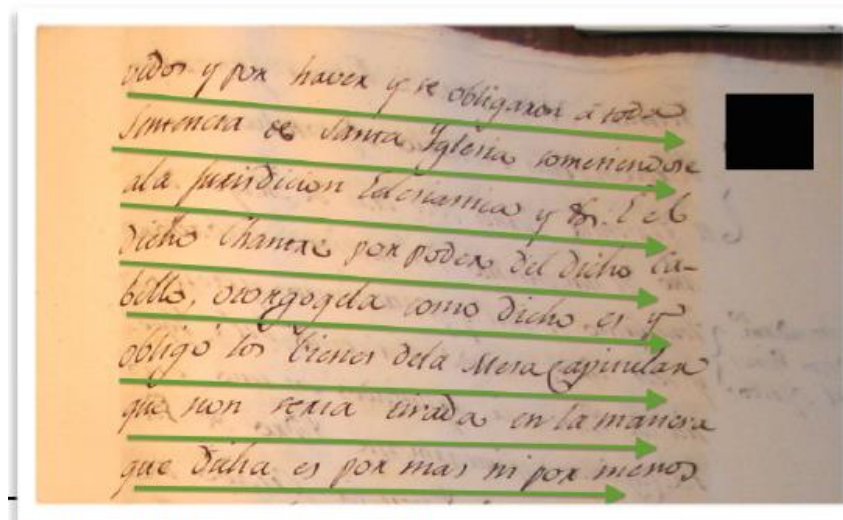 vidos y por haver y se obligaron á toda
Sentencia de Santa Yglesia sometiendose
ala jurisdicion Eclesiastica y &. E el
dicho Chantre por poder del dicho Ca-
billo, otorgogela como dicho es y
obligó los bienes dela Mesa Capitular
que non seria tirada en la manera
que dicha es por mas ni por menos